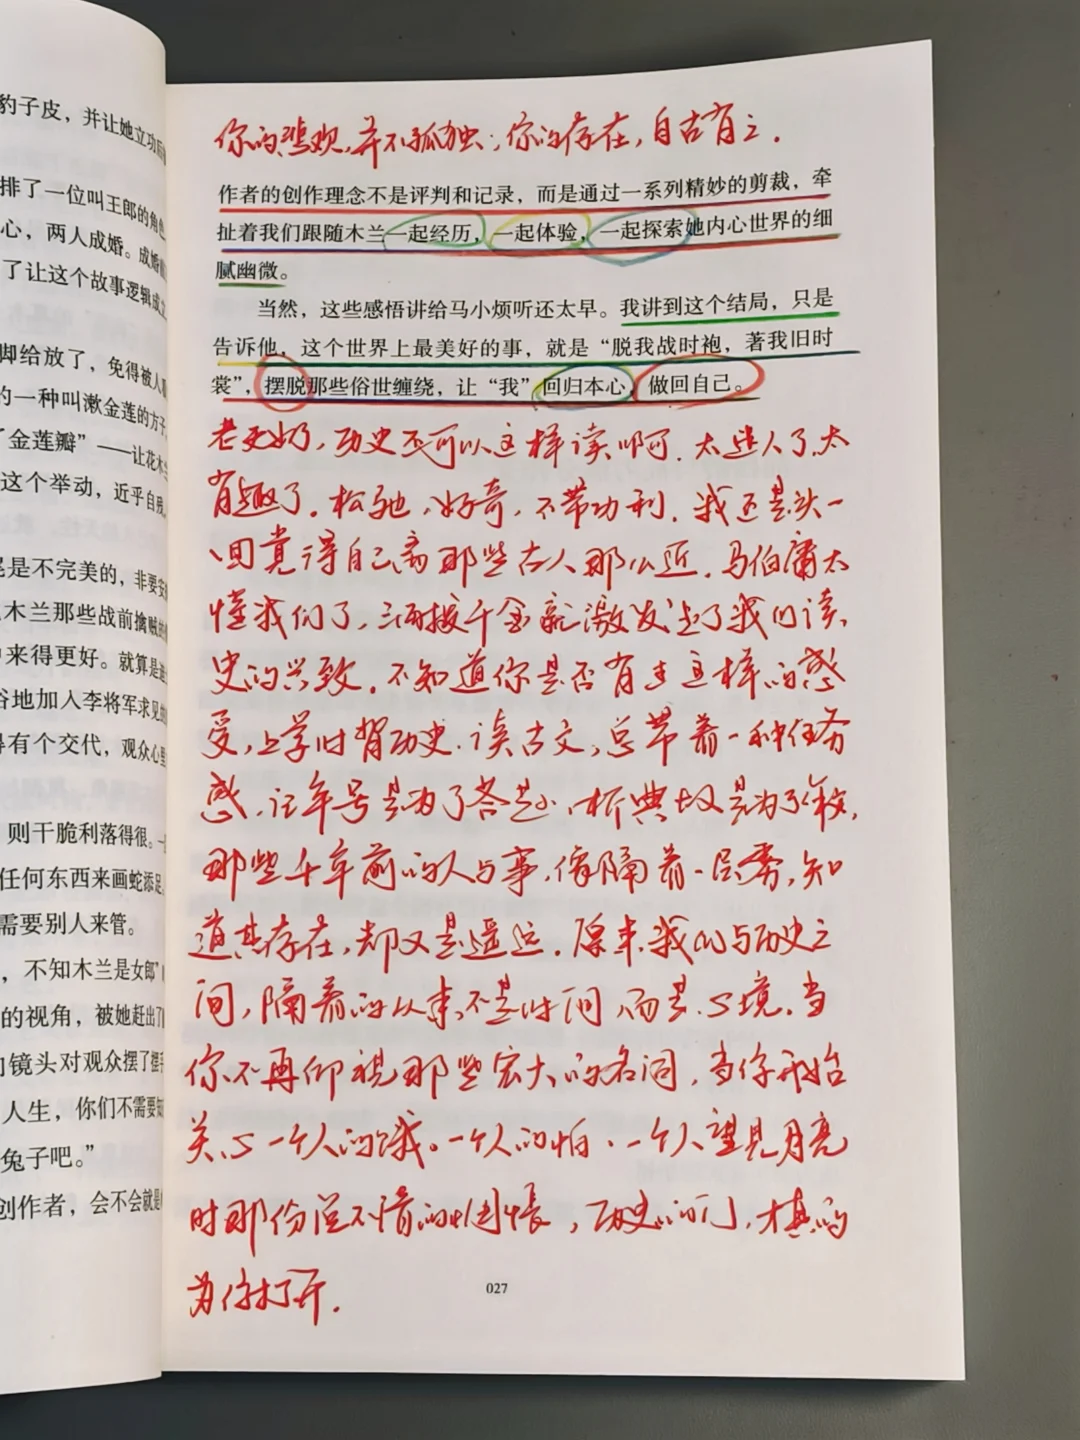 豹子皮，并让她立功后
排了一位叫王郎的角色
心，两人成婚。成婚
了让这个故事逻辑成立
脚给放了，免得被人
的一种叫漱金莲的方子
了金莲瓣”——让花木兰
这个举动，近乎自残
尾是不完美的，非要安
木兰那些战前擒贼的
中来得更好。就算是
俗地加入李将军求见
得有个交代，观众心里
则干脆利落得很。一
任何东西来画蛇添足
需要别人来管。
，不知木兰是女郎”
的视角，被她赶出了
镜头对观众摆了摆手
人生，你们不需要知
兔子吧。”
创作者，会不会就是
你的悲观,并不孤独;你的存在,自古有之.
作者的创作理念不是评判和记录，而是通过一系列精妙的剪裁，牵
扯着我们跟随木兰一起经历，一起体验，一起探索她内心世界的细
腻幽微。
当然，这些感悟讲给马小烦听还太早。我讲到这个结局，只是
告诉他，这个世界上最美好的事，就是“脱我战时袍，著我旧时
裳”，摆脱那些俗世缠绕，让“我”回归本心，做回自己。
老天奶,历史还可以这样读啊.太迷人了,太
有趣了.松弛,好奇,不带功利.我还是头一
回觉得自己离那些古人那么近.马伯庸太
懂我们了,三两拨千金就激发起了我们读
史的兴致.不知道你是否有过这样的感
受,上学时背历史.读古文,总带着一种任务
感,记年号是为了答题,析典故是为了分数,
那些千年前的人与事,像隔着一层雾,知
道其存在,却又是遥远.原来,我们与历史之
间,隔着的从来不是时间,而是心境.当
你不再仰视那些宏大的名词,当你开始
关心一个人的饿。一个人的怕、一个人望见月亮
时那份说不清的惆怅,历史的门,才真的
为你打开.
027